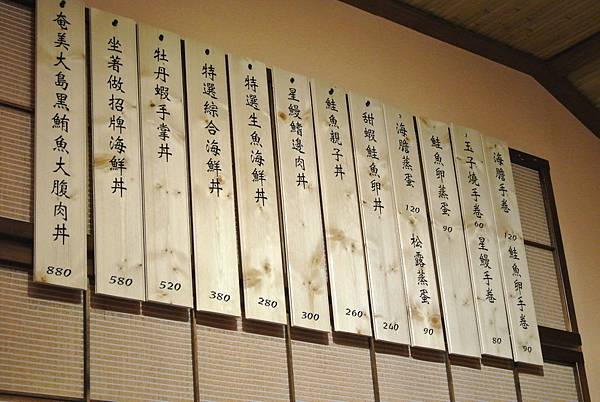 奄美大島黑鮪魚大腹肉丼
880
坐著做招牌海鮮丼
580
牡丹蝦手掌丼
520
特選綜合海鮮丼
380
特選生魚海鮮丼
280
星鰻鰭邊肉丼
300
鮭魚親子丼
260
甜蝦鮭魚卵丼
240
海膽蒸蛋
120
松露蒸蛋
90
鮭魚卵蒸蛋
90
玉子燒手卷
60
星鰻手卷
80
海膽手卷
120
鮭魚卵手卷
90